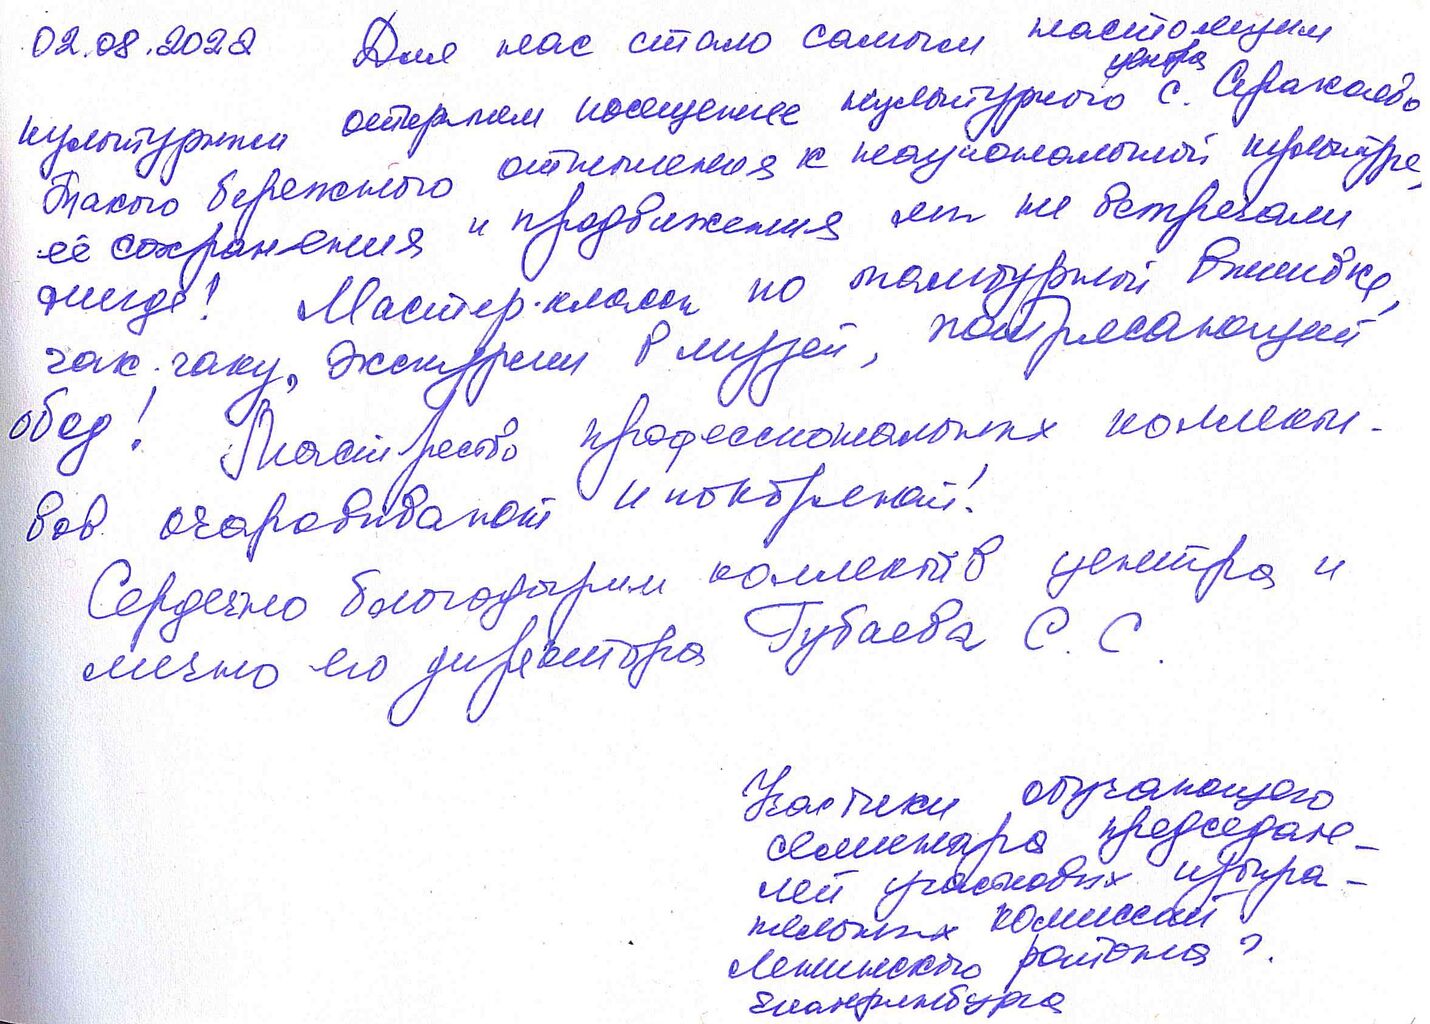 02.08.2022 Для нас стало самым настоящим
культурным остервлем посещение культурного центра с. Сфаколево
Такого бережного отношения к национальной культуре,
её сохранения и продвижения мы не встречали
нигде! Мастер-классы по тамбурной вышивке,
чак-чаку, экскурсии в музей, потрясающий
обед! Мастерство профессиональных коллекти-
вов очаровывают и покоряют!
Сердечно благодарим коллектив центра и
лично его директора Губаева С. С.
Участники обучающего
семинара председате-
лей участковых избира-
тельных комиссий
Ленинского района г.
Екатеринбурга